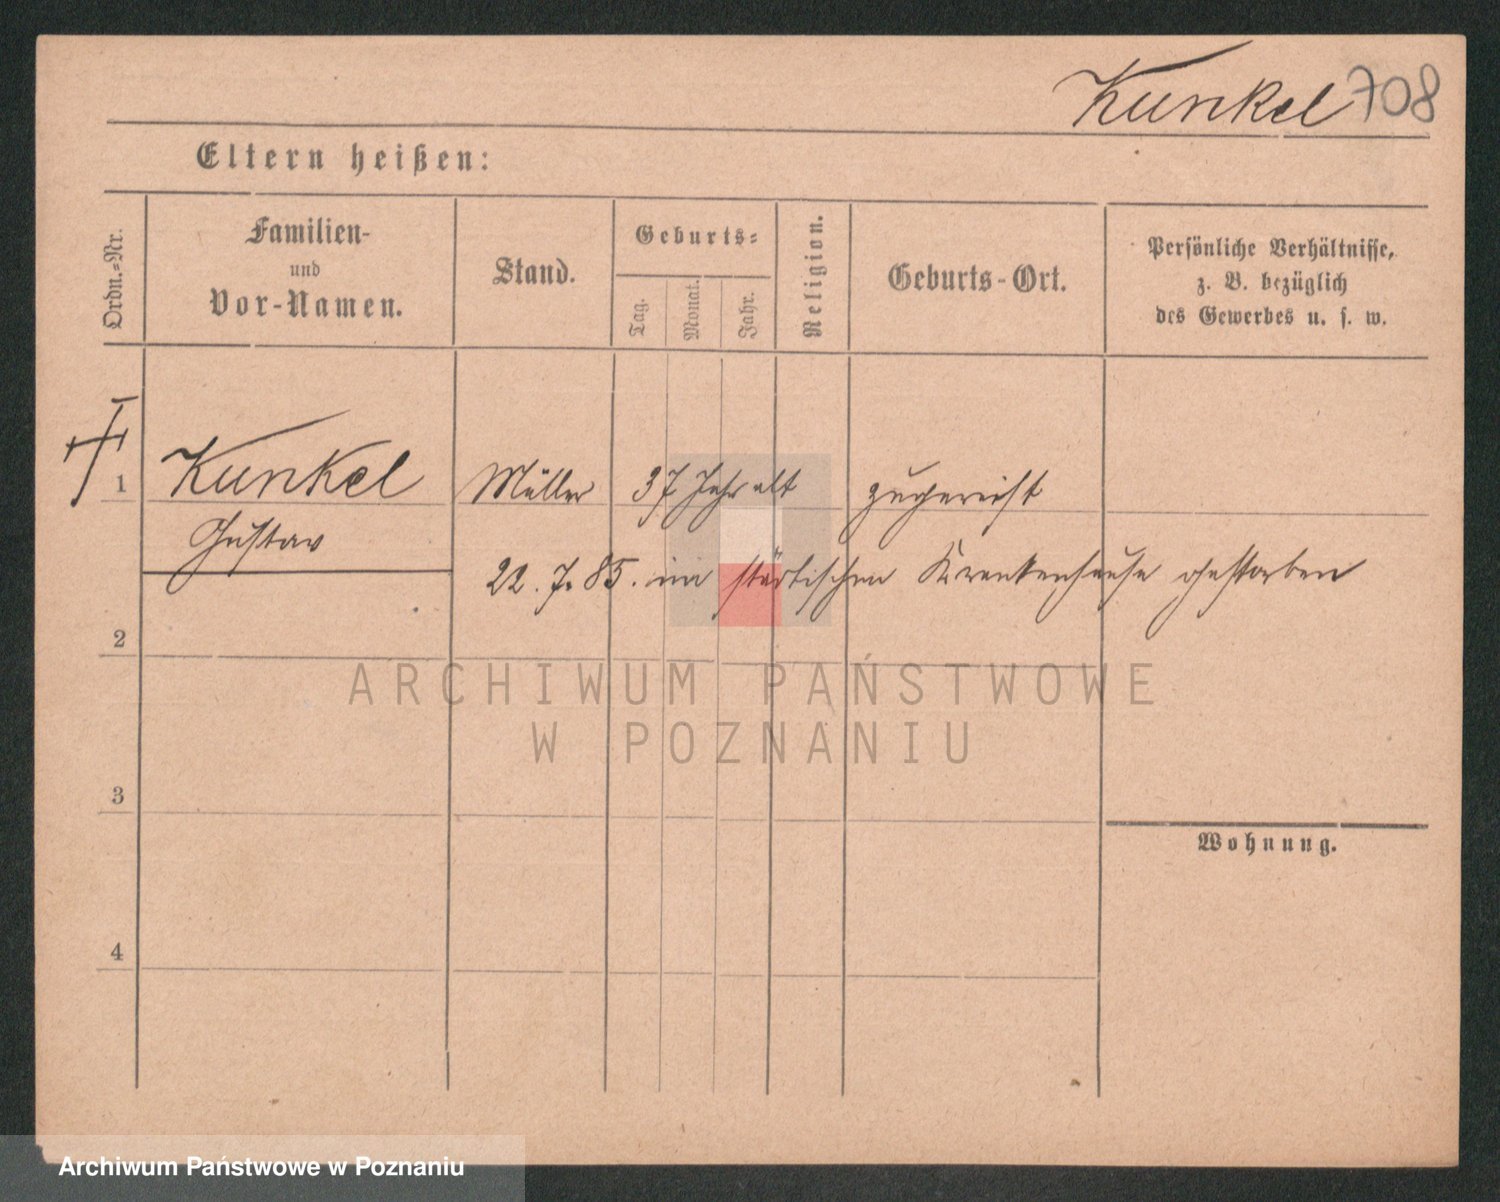 Kunkel 708
Eltern heißen:
Ordn.=Nr.
Familien-
und
Vor-Namen.
Stand.
Geburts=
Tag.
Monat.
Jahr.
Religion.
Geburts-Ort.
Persönliche Verhältnisse,
z. B. bezüglich
des Gewerbes u. s. w.
1 Kunkel Müller 37 Jahr alt zugereist
Gustav
22. 7. 85. im städtischen Krankenhause gestorben
2
ARCHIWUM PAŃSTWOWE
W POZNANIU
3
Wohnung.
4
Archiwum Państwowe w Poznaniu